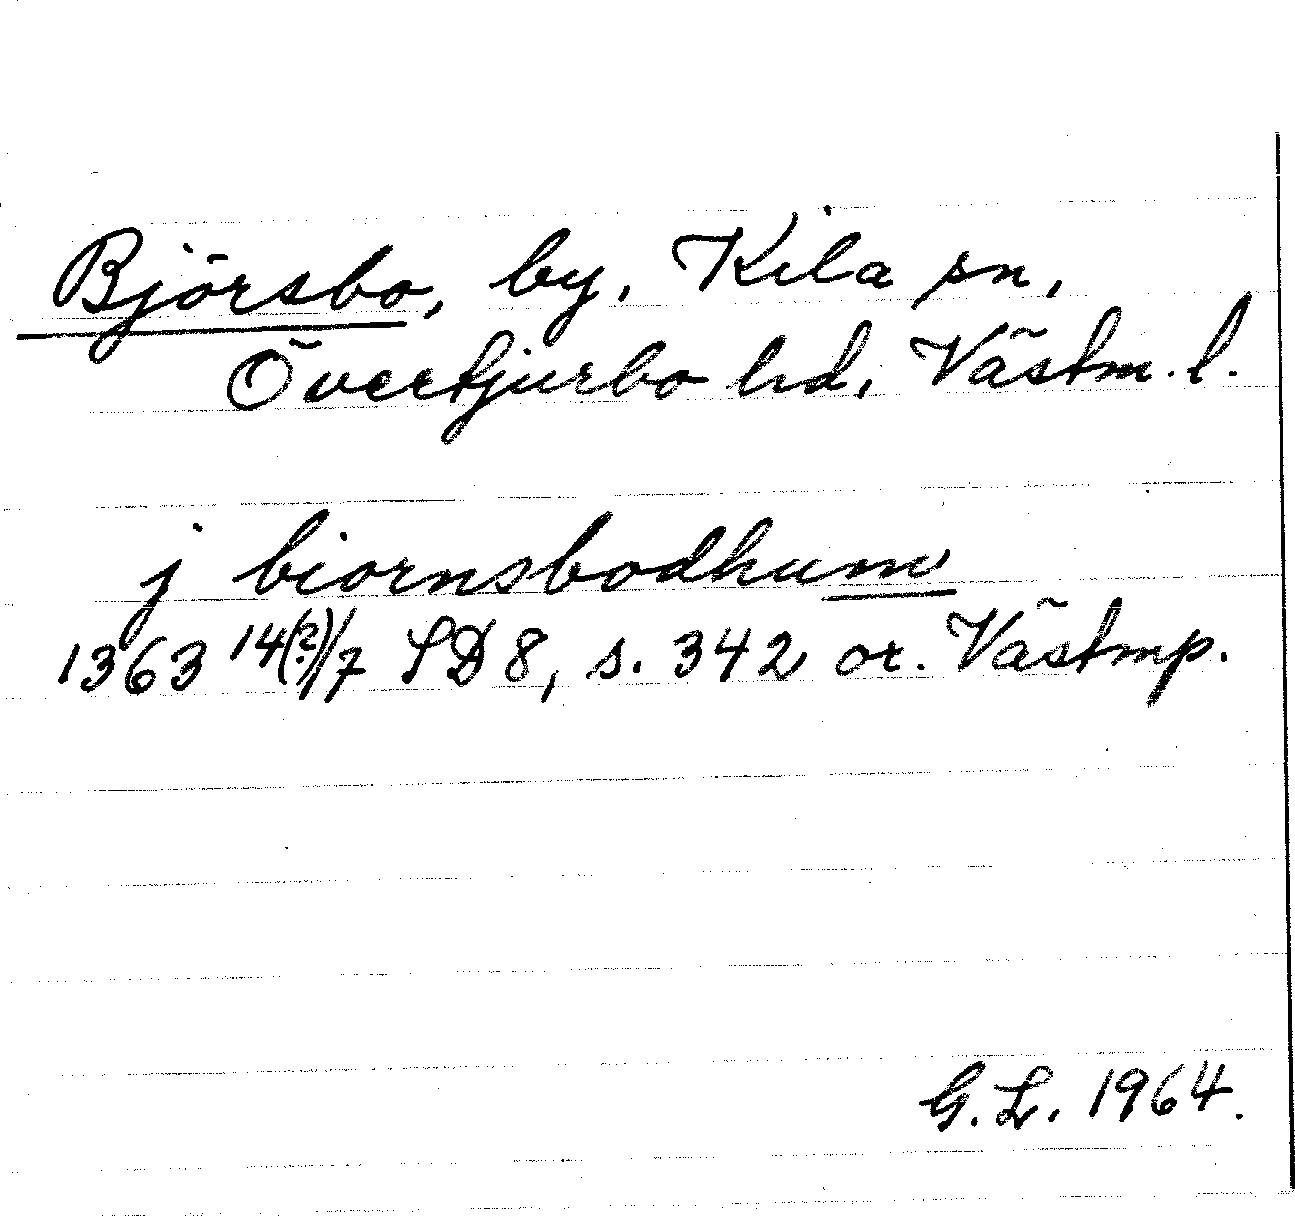 Björsbo, by, Kila sn,
Övertjurbo hd, Västm. l.
j biornsbodhum
1363 14(?)/7 SD 8, s. 342 or. Västmp.
G. L. 1964.